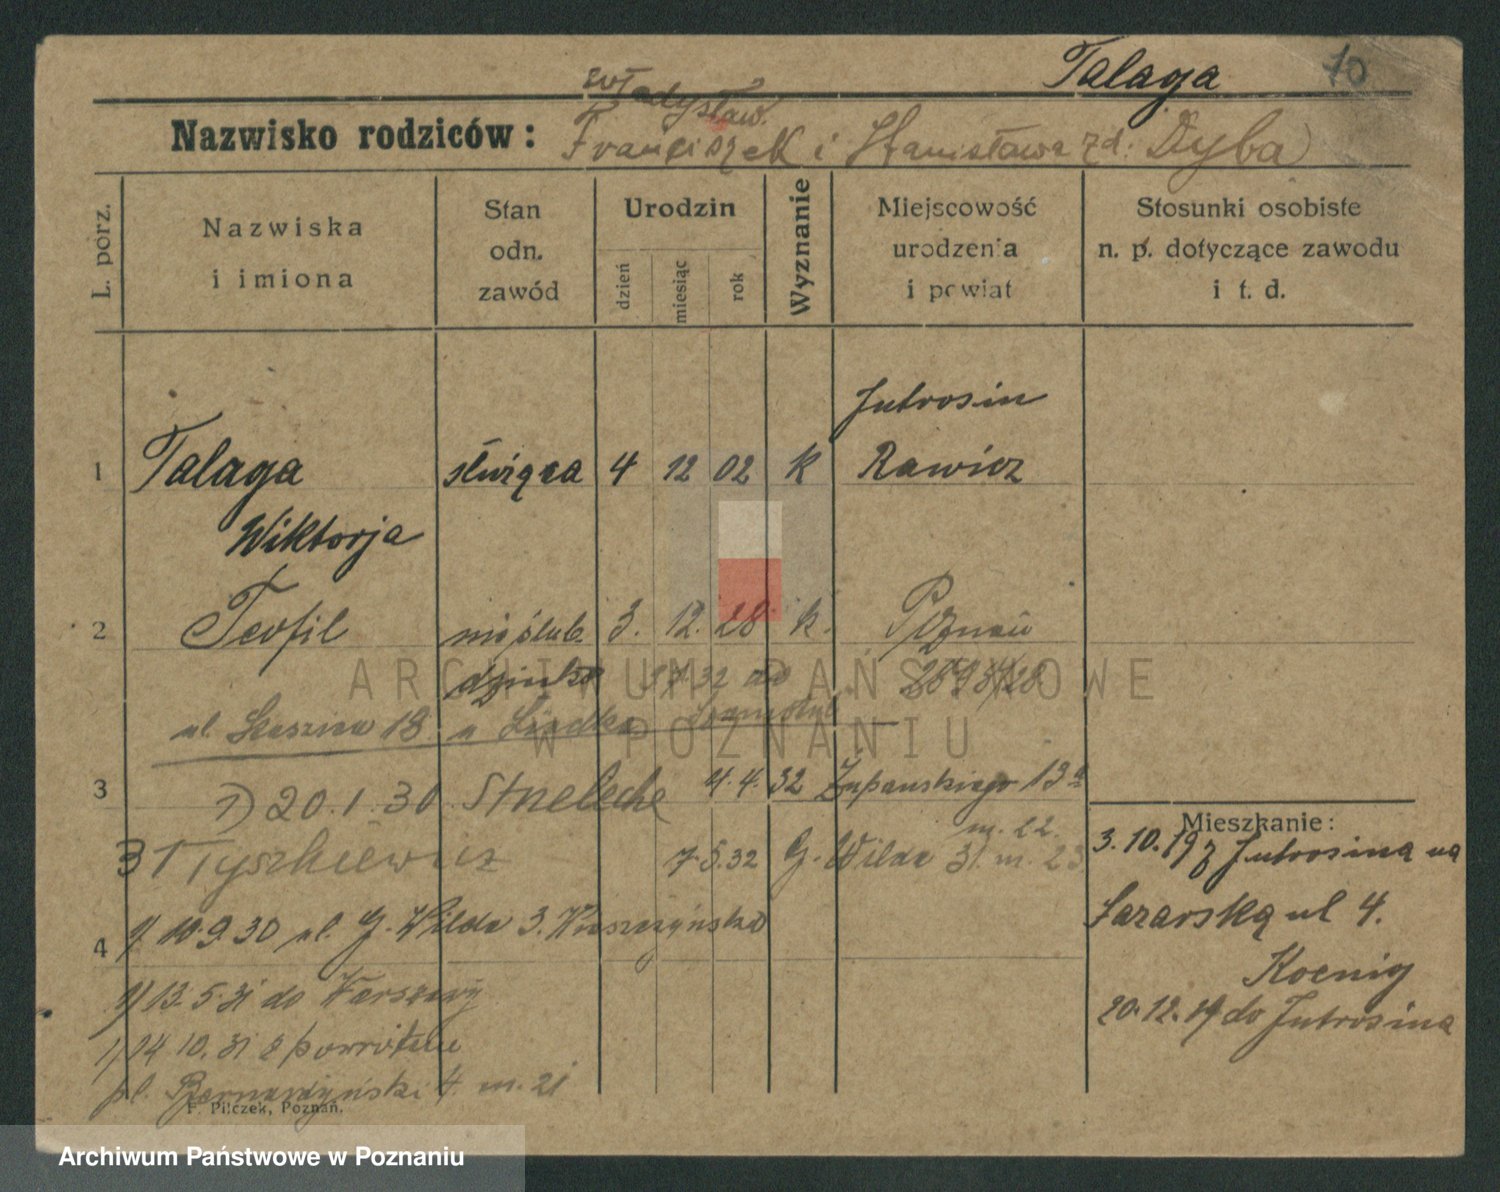 Talaga 10
Władysław.
Nazwisko rodziców: Franciszek i Stanisława zd. Dyba
L. porz.
Nazwiska i imiona
Stan odn. zawód
Urodzin
dzień
miesiąc
rok
Wyznanie
Miejscowość urodzenia i powiat
Stosunki osobiste n. p. dotyczące zawodu i t. d.
Jutrosin
1 Talaga służąca 4 12 02 k Rawicz
Wiktorja
2 Teofil nieślub. 3. 12. 28 k. Poznań
dziecko 32 do
ul. 18 u
3 1) 20.1.30 Strzelecka 4.4.32 Żupańskiego 13a
m. 22.
3 Tyszkiewicz 7.5.32 G. Wilda 31 m. 23
4 1/ 10.9.30 ul. G. Wilda 3.
1/ 13.5.31 do Warszawy
1/ 14 10.31 z powrotem
pl. Bernardyński 4 m. 21
F. Pilczek, Poznań.
Mieszkanie:
3.10.19 z Jutrosina na
Łazarską ul 4.
Koenig
20.12.19 do Jutrosina
ARCHIWUM PAŃSTWOWE
W POZNANIU
Archiwum Państwowe w Poznaniu